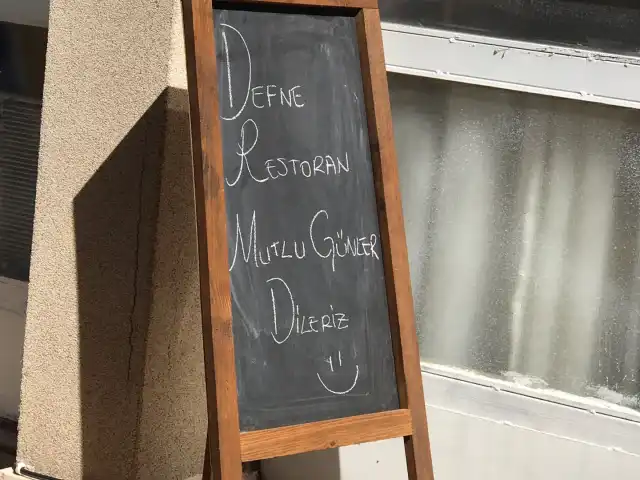 DEFNE
RESTORAN
MUTLU GÜNLER
DİLERİZ